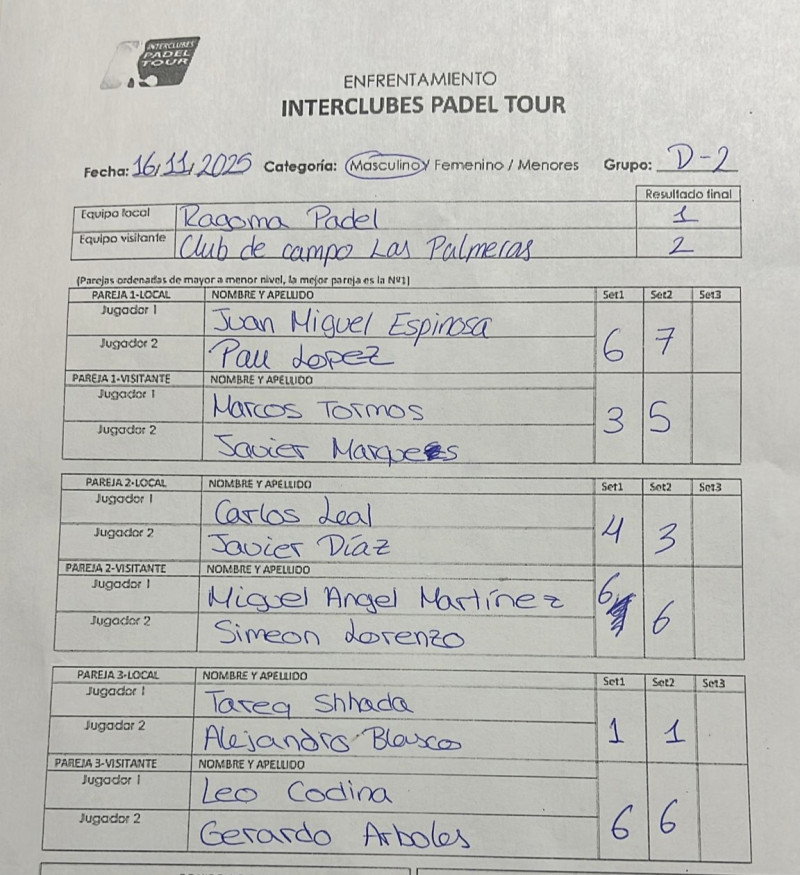 INTERCLUBES
PADEL
TOUR
ENFRENTAMIENTO
INTERCLUBES PADEL TOUR
Fecha: 16/11/2025 Categoría: Masculino/ Femenino / Menores Grupo: D-2
Resultado final
Equipo local Ragoma Padel 1
Equipo visitante Club de campo Las Palmeras 2
(Parejas ordenadas de mayor a menor nivel, la mejor pareja es la Nº1)
PAREJA 1-LOCAL NOMBRE Y APELLIDO Set1 Set2 Set3
Jugador 1 Juan Miguel Espinosa
Jugador 2 Pau Lopez 6 7
PAREJA 1-VISITANTE NOMBRE Y APELLIDO
Jugador 1 Marcos Tormos
Jugador 2 Javier Marques 3 5
PAREJA 2-LOCAL NOMBRE Y APELLIDO Set1 Set2 Set3
Jugador 1 Carlos Leal
Jugador 2 Javier Díaz 4 3
PAREJA 2-VISITANTE NOMBRE Y APELLIDO
Jugador 1 Miguel Angel Martínez
Jugador 2 Simeon Lorenzo 6 6
PAREJA 3-LOCAL NOMBRE Y APELLIDO Set1 Set2 Set3
Jugador 1 Tareq Shhada
Jugador 2 Alejandro Blasco 1 1
PAREJA 3-VISITANTE NOMBRE Y APELLIDO
Jugador 1 Leo Codina
Jugador 2 Gerardo Arboles 6 6